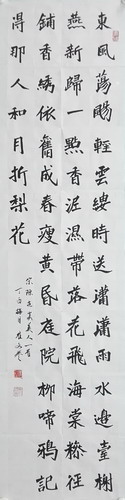 東風蕩颺輕雲縷時送瀟瀟雨水邊臺榭
燕新歸一點香泥濕帶落花飛海棠糝徑
鋪香繡依舊成春瘦黃昏庭院柳啼鴉記
得那人和月折梨花
宋陳亮虞美人一首
丁酉